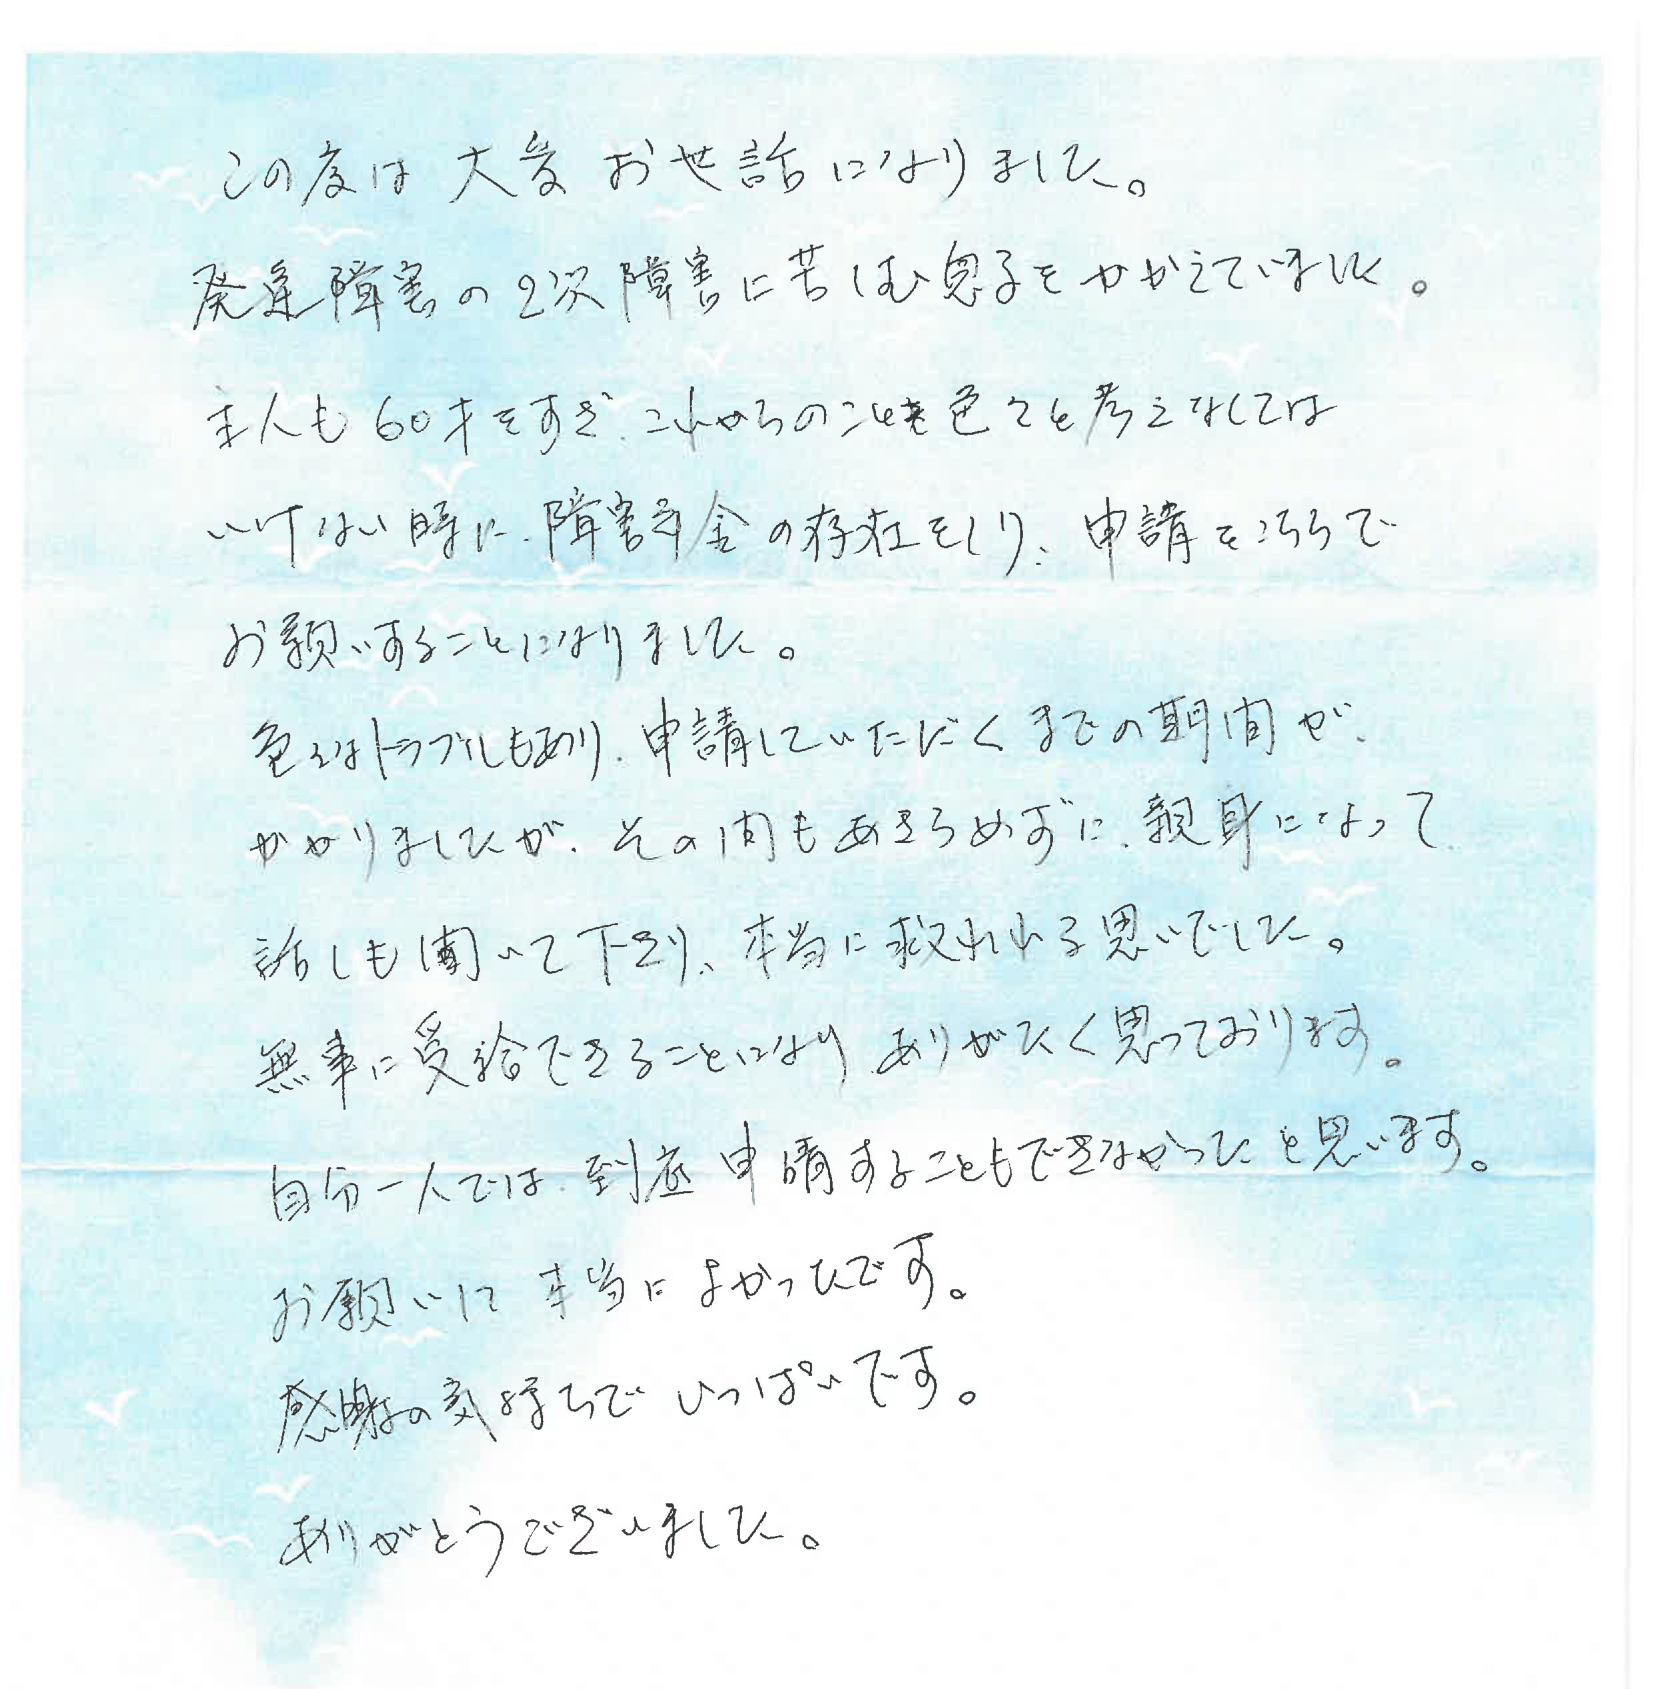 この度は大変お世話になりました。
発達障害の2次障害に苦しむ息子をかかえていました。
主人も60才をすぎ、これからのことを色々と考えなくては
いけない時に、障害年金の存在をしり、申請をこちらで
お願いすることになりました。
色々なトラブルもあり、申請していただくまでの期間が、
かかりましたが、その間もあきらめずに、親身になって
話しも聞いて下さり、本当に救われる思いでした。
無事に受給できることになりありがたく思っております。
自分一人では、到底申請することもできなかったと思います。
お願いして本当によかったです。
感謝の気持ちでいっぱいです。
ありがとうございました。